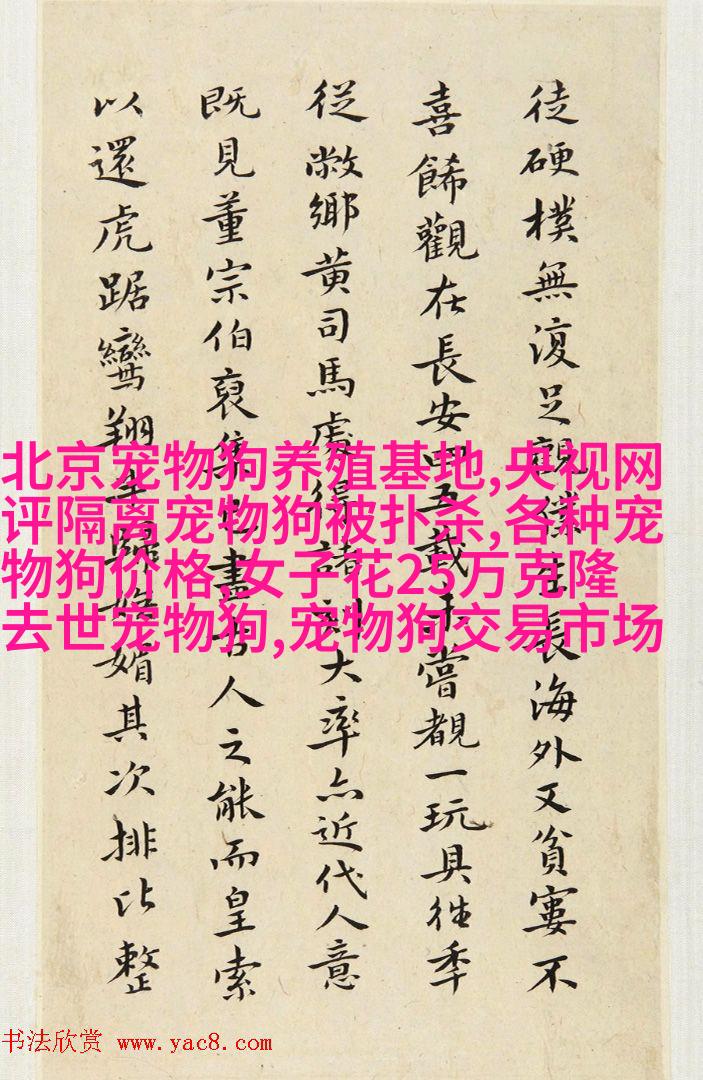 北京宠物狗养殖基地,央视网
评隔离宠物狗被扑杀,各种宠
物狗价格,女子花25万克隆
去世宠物狗,宠物狗交易市场
徒硬樸無復足觀僕生長海外又貧窶不
喜餙觀在長安四五載未嘗覩一玩具往季
從敝鄉黄司馬處得諸刻大率亦近代人意
既見董宗伯裒集盡古人之能而皇索
以還虎踞鸞翔歸媚其次排比整
书法欣赏 www.yac8.com